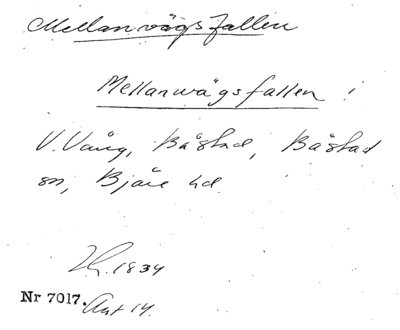 Mellanvägsfallen
Mellanvägsfallen i
V. Vång, Båstad, Båstad
sn, Bjäre hd.
1834
Nr 7017. Akt 14.